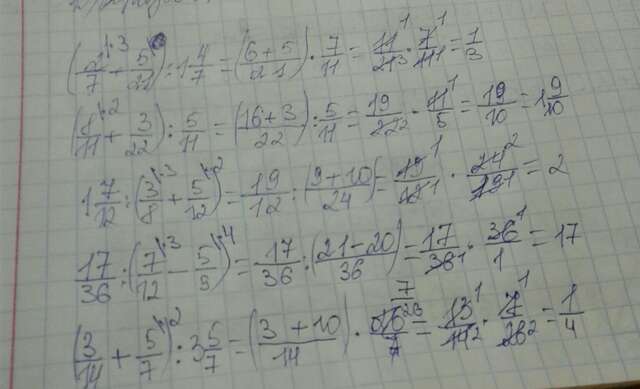 (2/7 + 5/21) : 1 4/7 = (6+5)/21 · 7/11 = 11/21 · 7/11 = 1/3
(8/11 + 3/22) : 5/11 = (16+3)/22 : 5/11 = 19/22 · 11/5 = 19/10 = 1 9/10
1 7/12 : (3/8 + 5/12) = 19/12 : (9+10)/24 = 19/12 · 24/19 = 2
17/36 : (7/12 - 5/9) = 17/36 : (21-20)/36 = 17/36 · 36/1 = 17
(3/14 + 5/7) : 3 5/7 = (3+10)/14 · 7/26 = 13/14 · 7/26 = 1/4